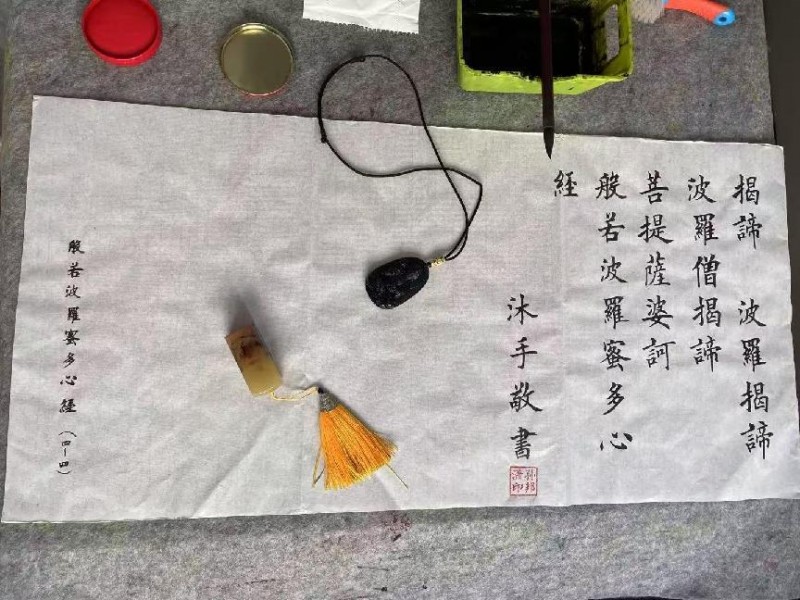 揭諦 波羅揭諦
波羅僧揭諦
菩提薩婆訶
般若波羅蜜多心
經
沐手敬書
般若波羅蜜多心經（四-四）